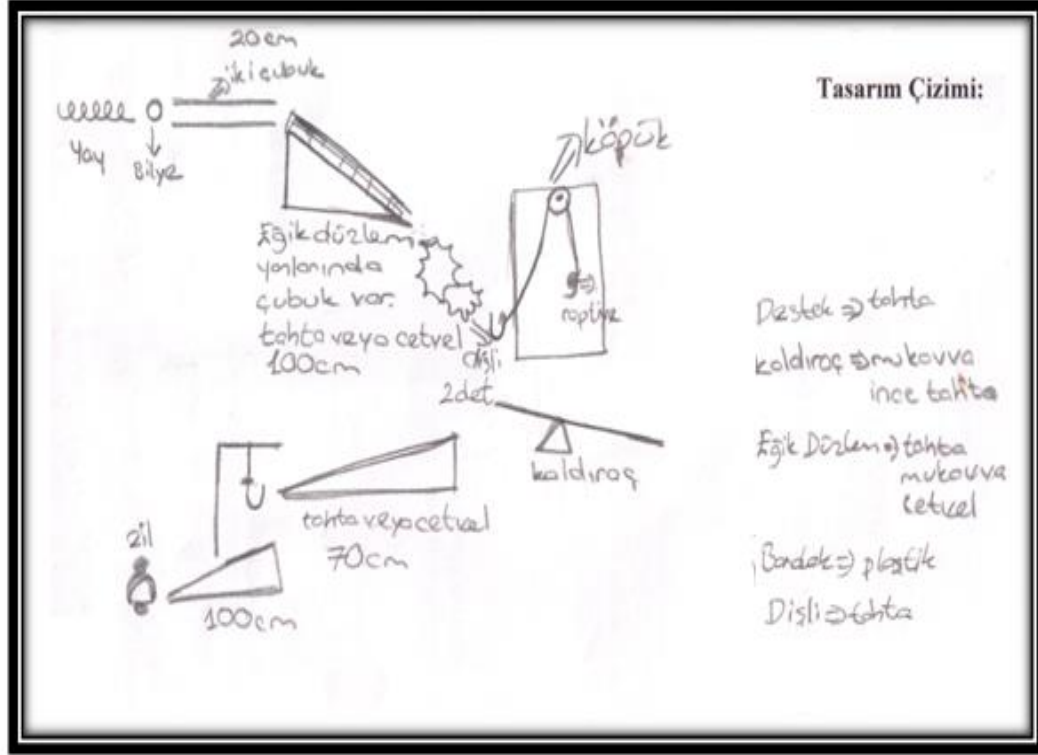 Tasarım Çizimi:
20 cm
iki çubuk
Yay
Bilye
Eğik düzlem
yanlarında
çubuk var.
tahta veya cetvel
100cm
köpük
raptiye
dişli
2 det
kaldıraç
tahta veya cetvel
70cm
zil
100cm
Destek => tahta
kaldıraç => mukavva
ince tahta
Eğik Düzlem => tahta
mukavva
cetvel
Bardak => plastik
Dişli => tahta